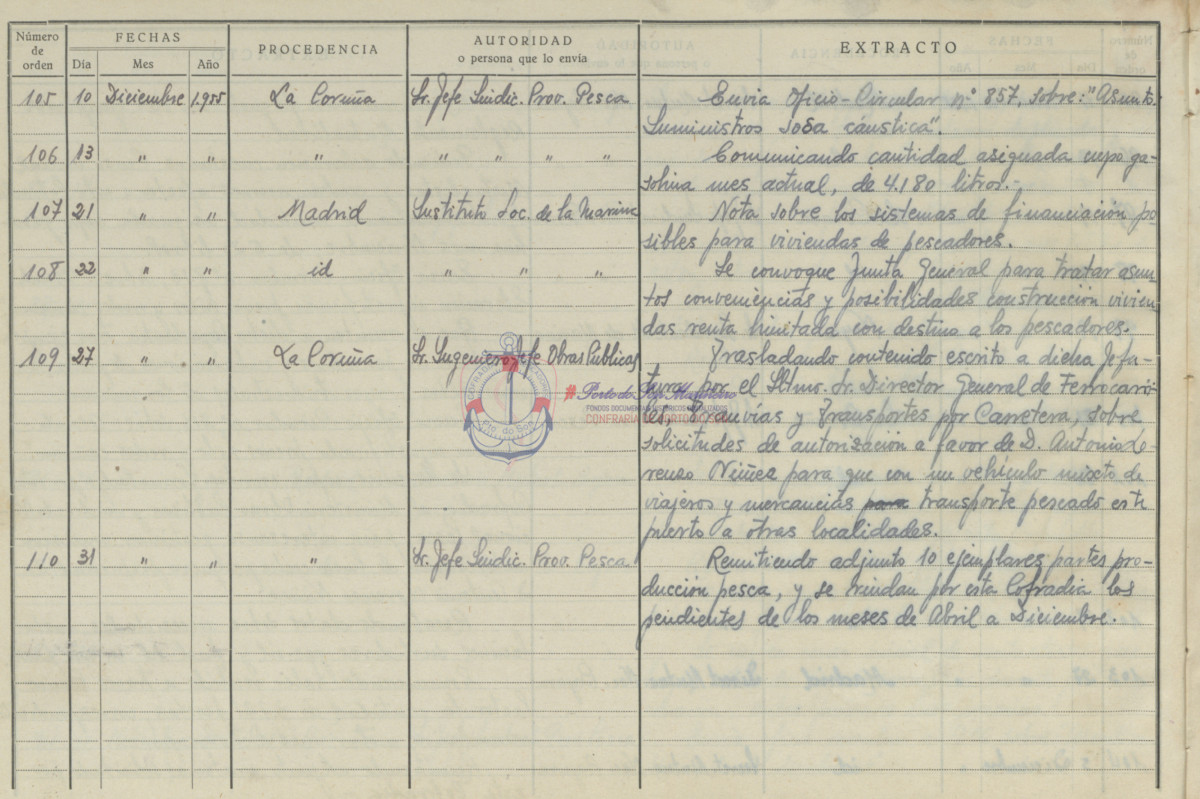 Número de orden | FECHAS | PROCEDENCIA | AUTORIDAD o persona que lo envía | EXTRACTO
Día | Mes | Año
105 | 10 | Diciembre | 1.955 | La Coruña | Sr. Jefe Sindic. Prov. Pesca | Envia Oficio-Circular nº 857, sobre: "Asunto.
Suministros sosa cáustica".
106 | 13 | " | " | " | " " " " | Comunicando cantidad asignada cupo ga-
solina mes actual, de 4.180 litros.-
107 | 21 | " | " | Madrid | Instituto Soc. de la Marina | Nota sobre los sistemas de financiación po
sibles para viviendas de pescadores.
108 | 22 | " | " | id | " " " | Se convoque Junta General para tratar asun
tos conveniencias y posibilidades construcción vivien
das renta limitada con destino a los pescadores.
109 | 27 | " | " | La Coruña | Sr. Ingeniero Jefe Obras Publicas | Trasladando contenido escrito a dicha Jefa-
tura por el Iltmo. Sr. Director General de Ferrocarri
les, Tranvías y Transportes por Carretera, sobre
solicitudes de autorización a favor de D. Antonio Lo-
renzo Núñez para que con un vehículo mixto de
viajeros y mercancías para transporte pescado este
puerto a otras localidades.
110 | 31 | " | " | " | Sr. Jefe Sindic. Prov. Pesca | Remitiendo adjunto 10 ejemplares partes pro-
ducción pesca, y se rindan por esta Cofradia los
pendientes de los meses de Abril a Diciembre.
Pto. do Son